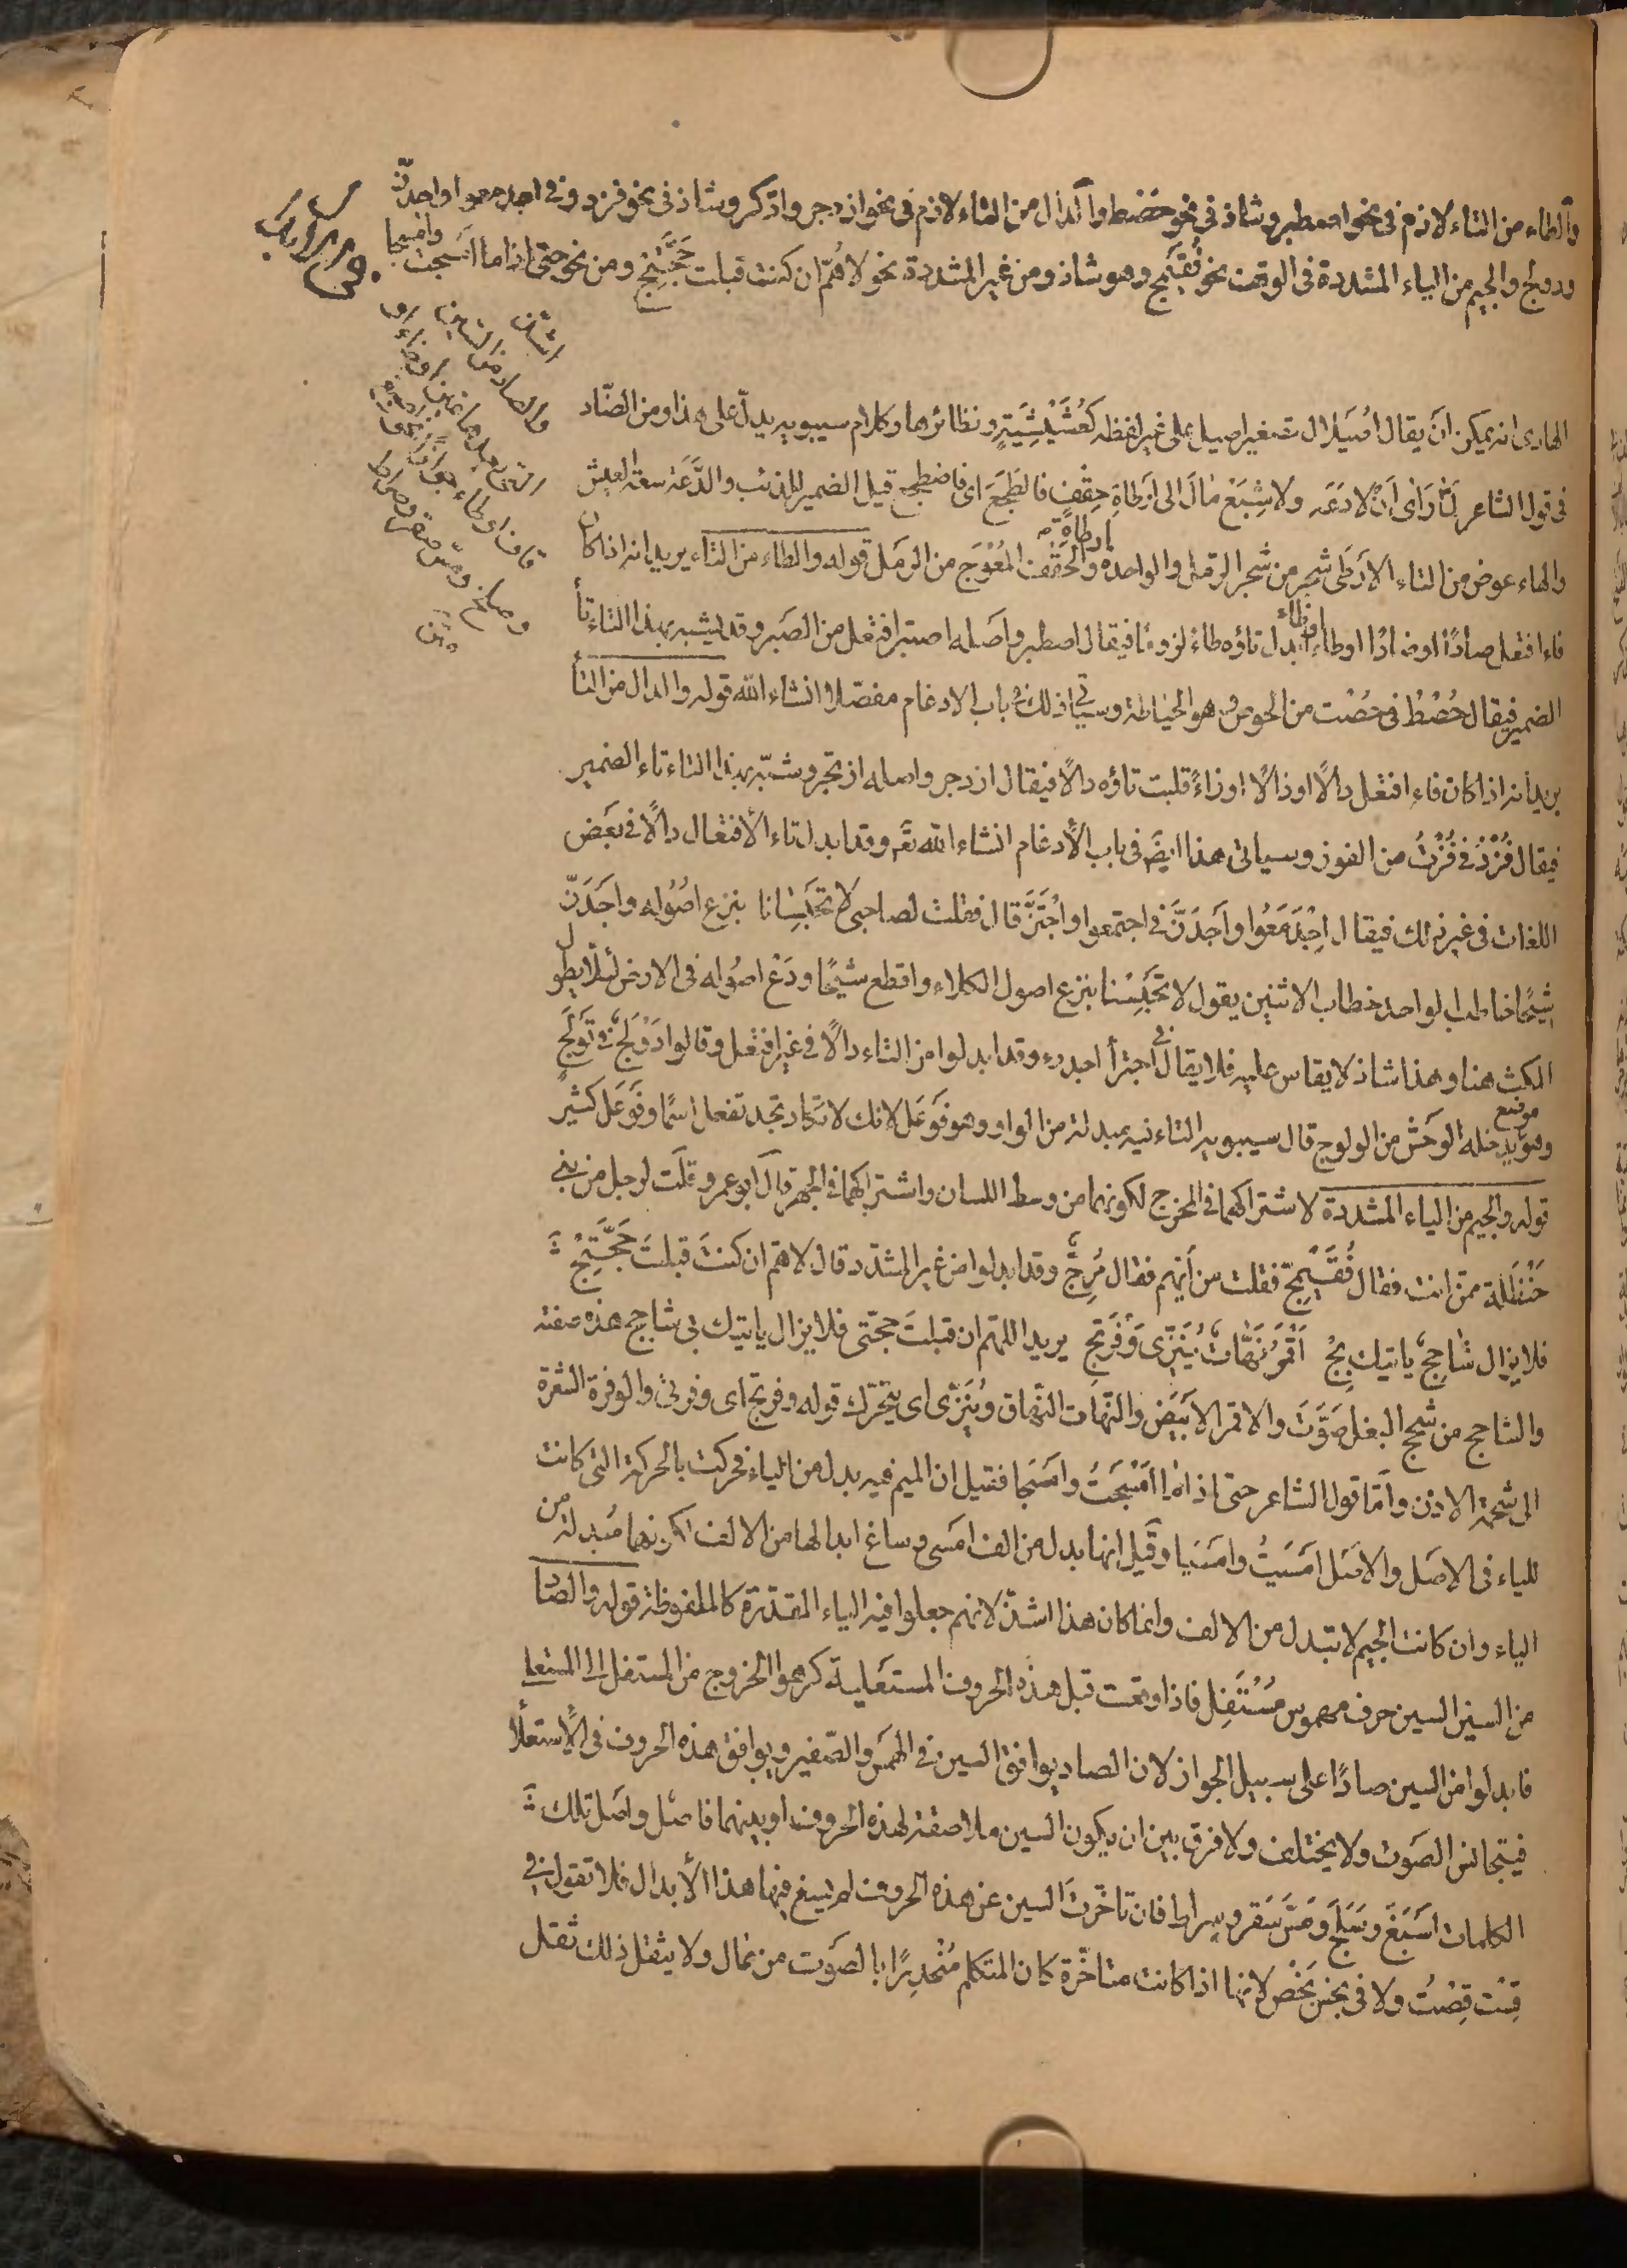 والطاء من التاء لازم فى نحو اصطبر وشاذ فى نحو حصط والدال من التاء لازم فى نحو ازدجر واذكر وشاذ فى نحو فزد وفى اجدمعوا واجدزّ
ودولج والجيم من الياء المشددة فى الوقف نحو فُقَيمج وهو شاذ ومن غير المشددة نحو لاهُمّ ان كنت قبلت حَجَّتِج ومن نحو حتى اذا ما امسجت وامسجا
اشذّ
والصاد من السين
التى بعدها غين او خاء او
قاف او طاء جوازًا نحو اصبغ
وصلخ ومسّ صقر وصراط
الهاوى انه يمكن ان يقال اُصَيلال تصغير اصيل على غير لفظه كعُشَيْشِيَةٍ ونظائرها وكلام سيبويه يدلّ على هذا ومن الضّاد
فى قول الشاعر لمّا رَاى اَنْ لا دَعَه ولا شِبَعْ مَالَ الى اَرْطَاةِ حِقْفٍ فالطَجَعَ اى فاضطجع قيل الضمير للذئب والدَّعَة سعة العيش
والهاء عوض من التاء الاَرْطَى شجر من شجر الرمل والواحدة ارطاةٌ والحِقْف المُعْوَج من الرمل قوله والطاء من التاء يريد انه اذا كان
فاء افتعل صادًا او ضادًا او طاءً او ظاء ابدل تاؤه طاءً لزومًا فيقال اصطبر واصله اصتبر افتعل من الصبر وقد يشبه بهذا التاء تأ
الضمير فيقال حُصْطُ فى حُصْت من الحوص وهو الخياطة وسيأتى ذلك فى باب الادغام مفصّلا انشاء الله قوله والدال من التأ
يريد انه اذا كان فاء افتعل دالًا او ذالًا او زاءً قلبت تاؤه دالًا فيقال ازدجر واصله ازتجر وشبّه بهذا التاء تاء الضمير
فيقال فُزْدُ فى فُزْتُ من الفوز وسياتى هذا ايضَ فى باب الأدغام انشاء الله تعَ وقد ابدل تاء الأفتعال دالًا فى بعض
اللغات فى غير ذلك فيقال اِجْدَمَعُوا واَجدَزَّ فى اجتمعوا واجْتَزَّ قال فقلت لصاحبى لا تحْبِسَانا بنزع اصُوُله واجدَزّ
شِيحًا خاطب الواحد خطاب الاثنين يقول لا تحبسنا بنزع اصول الكلاء واقطع شيحًا ودَعْ اصوله فى الارض لئلا يطول
المكث هنا وهذا شاذ لا يقاس عليه فلا يقال فى اجترأ اجدرء وقد ابدلوا من التاء دالًا فى غير افتعل وقالوا دَوْلَج فى تَوْلَج
وهو موضع يدخله الوحش من الولوج قال سيبويه التاء فيه مبدلة من الواو وهو فَوعَل لانك لا تكاد تجد تفعل اسمًا وفَوعَل كثيرٌ
قوله والجيم من الياء المشددة لاشتراكهما فى المخرج لكونهما من وسط اللسان واشتراكهما فى الجهر قال ابو عمرو قلت لرجل من بنى
حَنْظَلة ممّن انت فقال فُقَيْمِجّ فقلت من أيّهم فقال مُرِجّ وقد ابدلوا من غير المشدّد قال لاهُمّ ان كنتَ قبلتَ حَجَّتِجْ
فلا يزال شَاحِجٌ ياتيك بِجْ اَقْمَرُ نَهَّاتٌ يُنَزِّى وَفْرَتج يريد اللهم ان قبلتَ حجتى فلا يزال ياتيك بى شاحج هذه صفته
والشاحج من شحج البغل صَوَّتَ والاقمر الابيض والنهات النهاق ويُنَزّى اى يتحرّك قوله وفرتج اى وفرتى والوفرة الشعرة
الى شحمة الاذن وامّا قول الشاعر حتى اذا ما امْسَجَتْ وامسَجا فقيل ان الجيم فيه بدل من الياء فحركت بالحركة التى كانت
للياء فى الاصل والاصل امسَيَتْ وامسَيا وقيل انها بدل من الف امسى وساغ ابدالها من الالف لكونها مُبدلة من
الياء وان كانت الجيم لا تبدل من الالف وانما كان هذا اشذّ لانهم جعلوا فيه الياء المقدّرة كالملفوظة قوله والصاد
من السين السين حرف مهموس مُسْتَفِل فاذا وقعت قبل هذه الحروف المستعلية كرهوا الخروج من المستفل الى المستعلى
فابدلوا من السين صادًا على سبيل الجواز لان الصاد يوافق السين فى الهمس والصّفير ويوافق هذه الحروف فى الاستعلأ
فيتجانس الصّوت ولا يختلف ولا فرق بين ان يكون السين ملاصقة لهذه الحروف او بينهما فاصل واصل تلك
الكلمات اَسْبَغَ وسَلَخَ ومَسَّ سَقَر وسراط فان تاخّرت السين عن هذه الحروف لم يسغ فيها هذا الأبدال فلا تقول فى
قِسْت قِصْت ولا فى بخس بَخْص لانها اذا كانت متاخّرة كان المتكلم مُنْحدِرًا بالصّوت من عال ولا يثقل ذلك ثقل